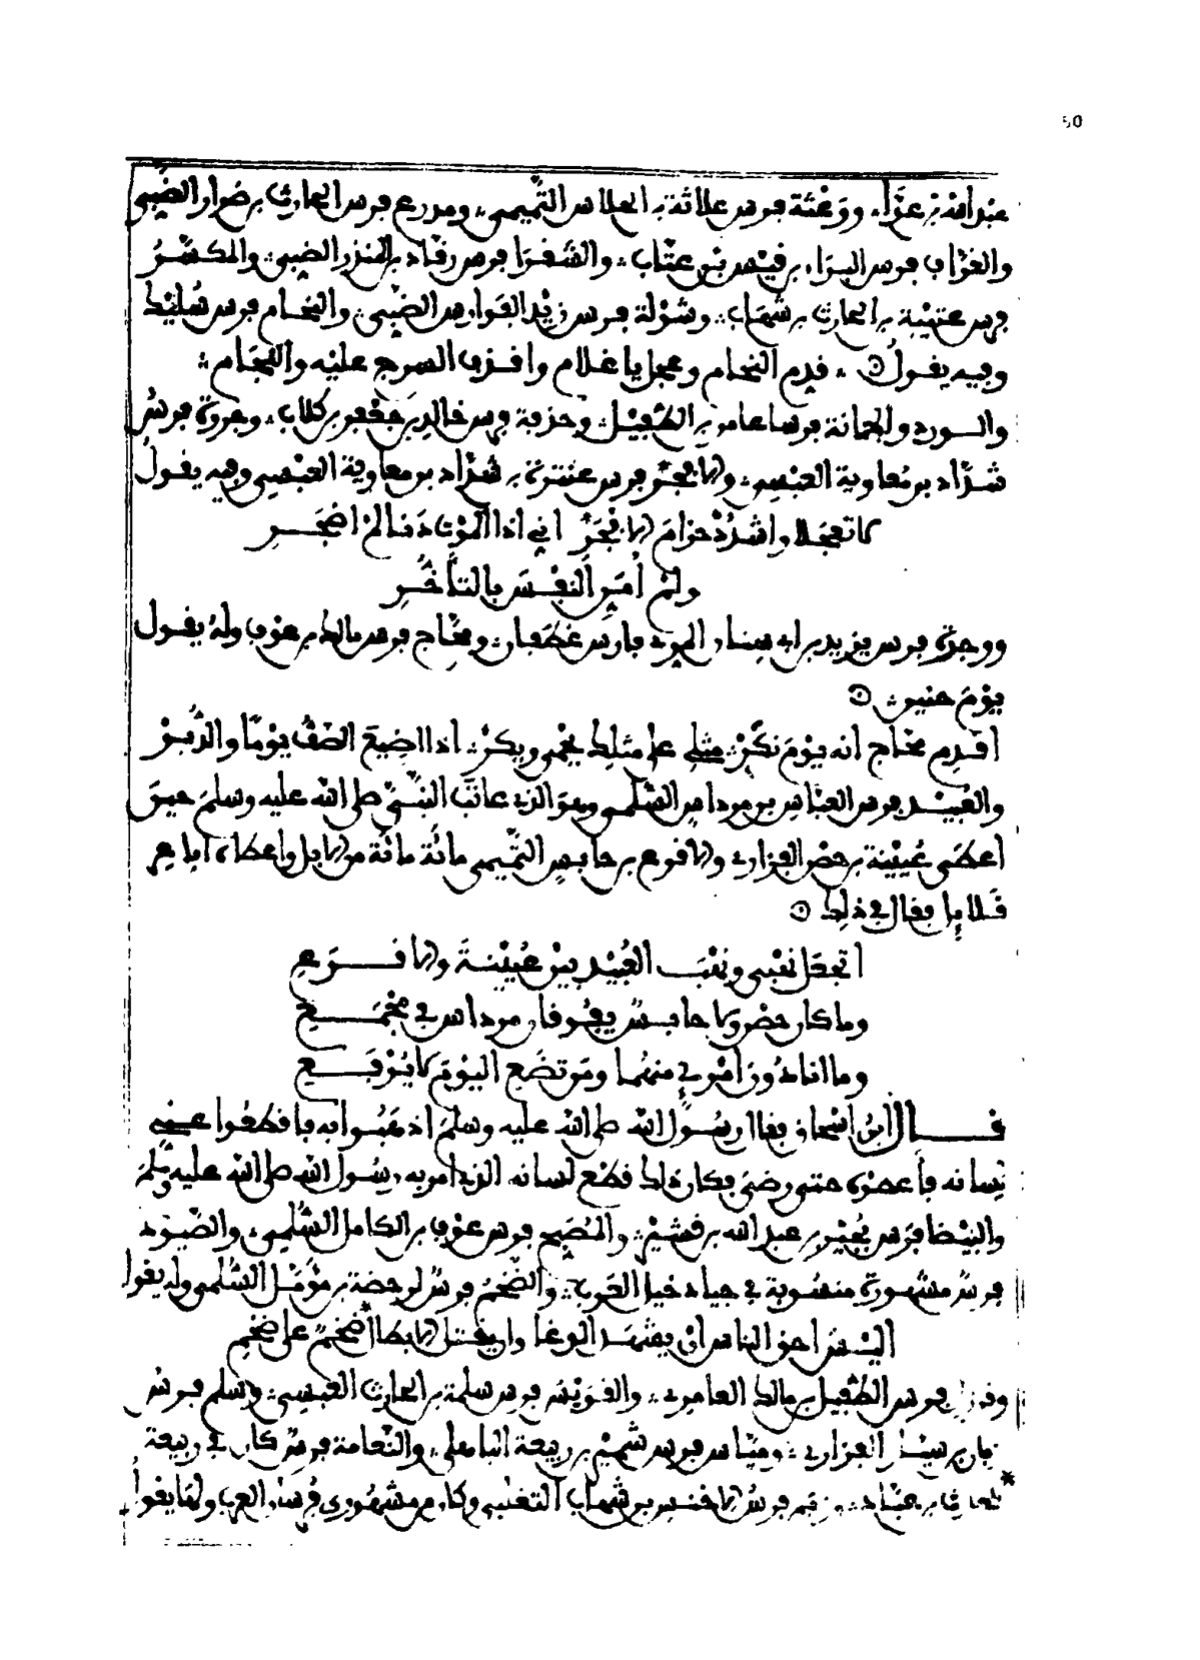 50
عبد الله بن عزاء، ووعثة فرس علاثة بن الجلاس التميمي، ومدرع فرس الحارث بن ضرار الضبي
والغراب فرس البراء بن قيس بن عتاب، والشقرا فرس رقاد بن المنذر الضبي، والمكسر
فرس عتيبة بن الحارث بن شهاب، وشولة فرس زيد الفوارس الضبي، والنحام فرس سليط
وفيه يقول قدم النحام وعجل يا غلام واقذف السرج عليه واللجام
والورد والجمانة فرسا عامر بن الطفيل، وحذفة فرس خالد بن جعفر بن كلاب، وجروة فرس
شداد بن معاوية العبسي، والابجر فرس عنترة بن شداد بن معاوية العبسي وفيه يقول
لا تعجلا واشدد حزام الابجر اني اذا الموت دنا لم اضجر
ولم امن النفس بالتأخر
ووجزة فرس يزيد بن ابي سنان المري فارس غطفان، ومحاج فرس مالك بن عوف وله يقول
يوم حنين
اقدم محاج انه يوم نكر مثلي على مثلك يحمي ويكر اذا اضيع الصف يوما والدبر
والعبيد فرس العباس بن مرداس السلمي وهو الذي عاتب النبي صلى الله عليه وسلم حين
اعطى عيينة بن حصن الفزاري والاقرع بن حابس التميمي مائة مائة من الابل واعطاه اباعر
قلايل فقال في ذلك
اتجعل نهبي ونهب العبيد بين عيينة والاقرع
وما كان حصن ولا حابس يفوقان مرداس في مجمع
وما انا دون امرئ منهما ومن تضع اليوم لا يرفع
قال ابن اسحاق فقال رسول الله صلى الله عليه وسلم اذهبوا به فاقطعوا عني
لسانه فأعطوه حتى رضي فكان ذلك قطع لسانه الذي امر به رسول الله صلى الله عليه وسلم
والبيضا فرس بحير بن عبد الله بن قشير، والمصبح فرس عوف بن الكاهل السلمي، والضيود
فرس مشهورة منسوبة في جياد خيل العرب، والضخم فرس لرحضة بن مؤمل السلمي وله يقول
اليس احق الناس ان يشهد الوغا وان يقتل الابطال ضخم على ضخم
وقرزل فرس الطفيل بن مالك العامري، والقويس فرس سلمة بن الحارث العبسي، وسلم فرس
زبان بن سيار الفزاري، ومياس فرس شقيق بن ربيعة الباهلي، والنعامة فرس كان في ربيعة
للحارث بن عباد، فرس الاخنس بن شهاب التغلبي وكان من مشهوري فرسان العرب ولها يقول